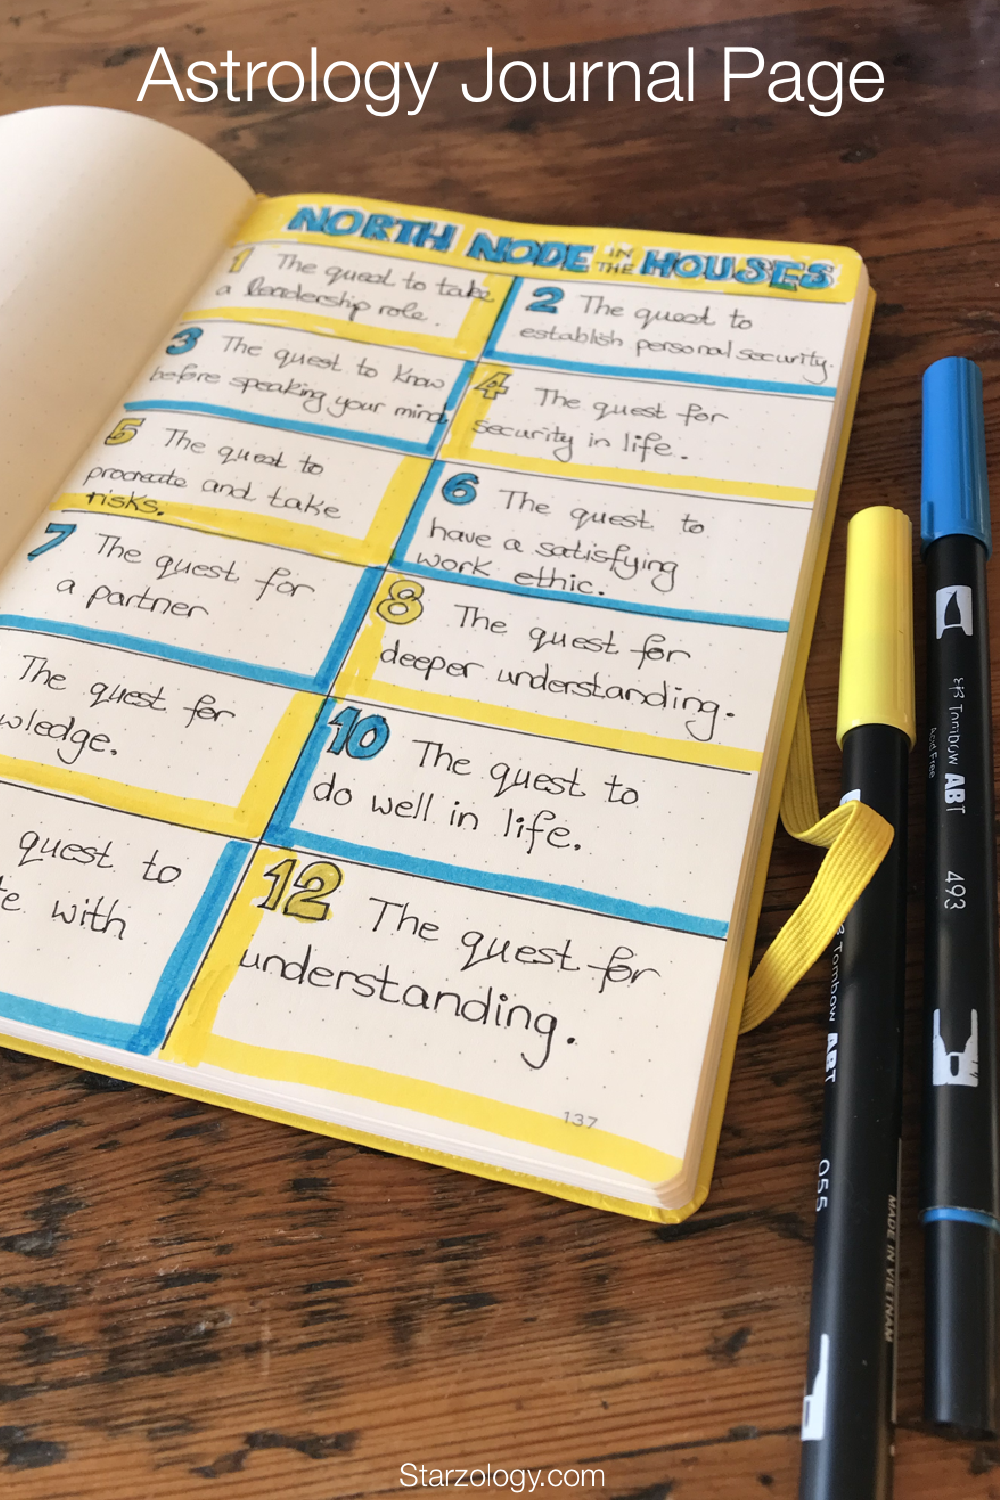 Astrology Journal Page
NORTH NODE IN THE HOUSES
1 The quest to take
a leadership role.
2 The quest to
establish personal security.
3 The quest to know
before speaking your mind
4 The quest for
security in life.
5 The quest to
procreate and take
risks.
6 The quest to
have a satisfying
work ethic.
7 The quest for
a partner
8 The quest for
deeper understanding.
The quest for
wledge.
10 The quest to
do well in life.
quest to
te with
12 The quest for
understanding.
137
Tombow ABT
Acid Free
493
Tombow ABT
055
MADE IN VIETNAM
Starzology.com